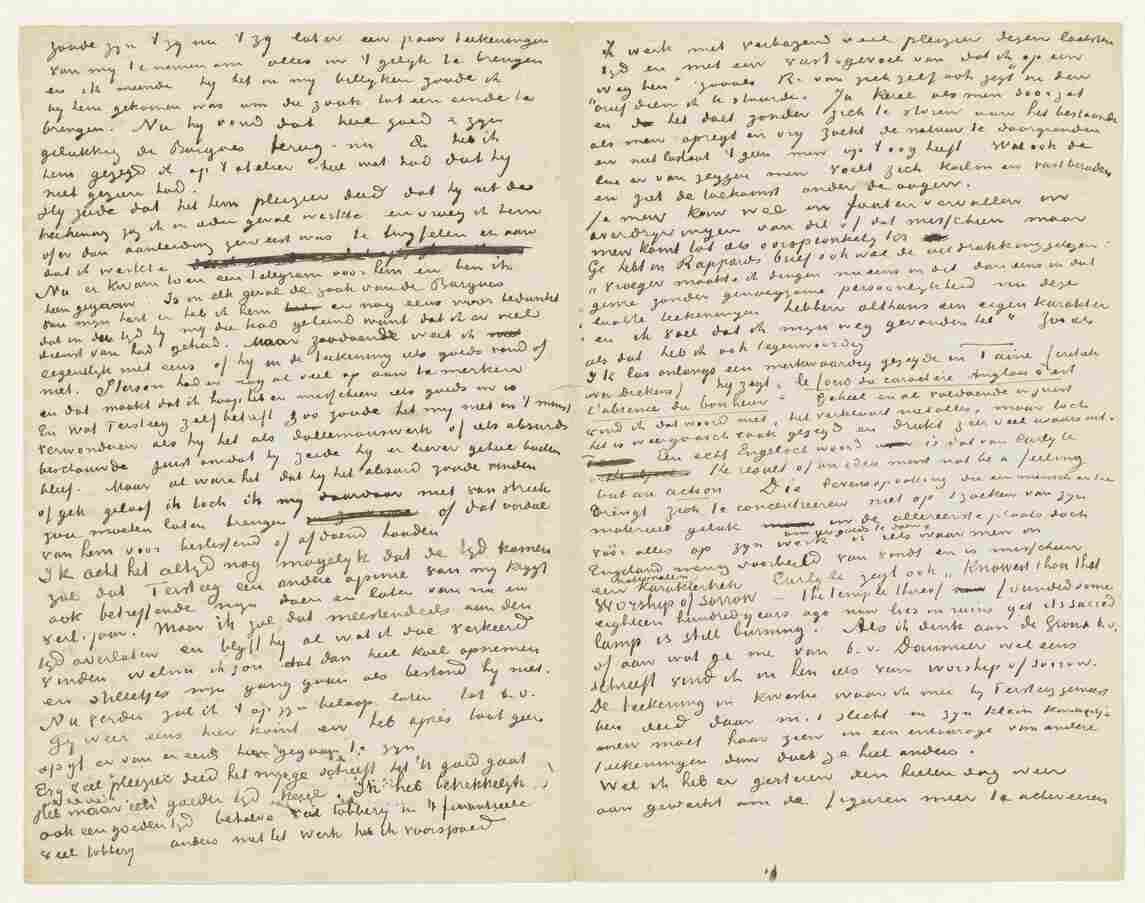 zoude zyn 't zy nu 't zy later een paar teekeningen
van my te nemen om alles in 't gelyk te brengen
en ik meende hy het in my billyken zoude ik
by hem gekomen was om die zaak tot een einde te
brengen. Nu hy vond dat heel goed & zyn
gelukkig de Bargues terug - nu heb ik
hem gezegd ik op 't atelier heel wat had dat hy
niet gezien had.
Hy zeide dat het hem pleizier deed dat hy uit de
teekening zag ik in ieder geval werkte en vroeg ik hem
of er dan aanleiding geweest was te twyfelen er aan
dat ik werkte
Nu er kwam toen een telegram voor hem en ben ik
heen gegaan. Is in elk geval de zaak van de Bargues
van myn hart en heb ik hem er nog eens voor bedankt
dat in der tyd hy my die had geleend want dat ik er veel
dienst van had gehad. Maar zoodoende weet ik
eigenlyk niet eens of hy in de teekening iets goeds vond of
niet. Pterson had er nog al veel op aan te merken
en dat maakt dat ik hoop er misschien iets goeds in is
En wat Tersteeg zelf betreft zoo zoude het my niet in 't minst
verwonderen als hy het als dollemanswerk of iets absurds
beschouwde juist omdat hy zeide hy er liever geheel buiten
bleef. Maar al ware het dat hy het absurd zoude vinden
of gek geloof ik toch ik my daardoor niet van streek
zou moeten laten brengen of dat oordeel
van hem voor beslissend of afdoend houden
Ik acht het altyd nog mogelyk dat de tyd komen
zal dat Tersteeg een andere opinie van my krygt
ook betreffende myn doen en laten van nu en
verl. jaar. Maar ik zal dat meerendeels aan den
tyd overlaten en blyft hy al wat ik doe verkeerd
vinden welnu ik zou dat dan heel koel opnemen
en stilletjes myn gang gaan als bestond hy niet.
Nu verder zal ik 't op zyn beloop laten tot b.v.
Gy weer eens hier komt en heb après tout geen
spyt er van er eens heen gegaan te zyn
Erg veel pleizier deed het my ge schreeft het U goed gaat
Heb maar een goeden tyd kerel. Ik heb betrekkelyk
ook een goeden tyd behalve veel tobbery in 't financieele
veel tobbery anders met het werk heb ik voorspoed
Ik werk met verbazend veel pleizier dezen laatsten
tyd en met een vast gevoel van dat ik „op een
weg ben" zooals R. van zich zelf ook zegt in den
brief dien ik U stuurde. Ja kerel als men doorzet
en het doet zonder zich te storen aan het bestaande
als men opregt en vry zoekt de natuur te doorgronden
en niet loslaat 't geen men op 't oog heeft Wat ook de
lui er van zeggen men voelt zich kalm en vastberaden
en ziet de toekomst onder de oogen.
Ja men kan wel in fouten vervallen in
overdryvingen van dit of dat misschien maar
men komt tot iets oorspronkelyks
Ge hebt in Rappards brief ook wel de uitdrukking gelezen:
„vroeger maakte ik dingen nu eens in dit dan eens in dat
genre zonder genoegzame persoonlykheid nu deze
laatste teekeningen hebben althans een eigen karakter
en ik voel dat ik myn weg gevonden heb". Zoo iets
als dat heb ik ook tegenwoordig
Ik las onlangs een merkwaardig gezegde in Taine (Artikel
over Dickens) hy zegt: le fond du caractère Anglais c'est
l'absence du bonheur. Geheel en al voldoende en juist
vond ik dat woord niet, het verklaart niet alles, maar toch
het is weergaasch raak gezegd en drukt zeer veel waars uit.
Een echt Engelsch woord is dat van Carlyle
the result of an idea must not be a feeling
but an action Die levensopvatting die een mensch er toe
brengt zich te concentreeren niet op 't zoeken van zyn
materieel geluk in de allereerste plaats doch
vóór alles op zyn werk om iets goeds te doen is iets waar men in
Engeland menig voorbeeld van vindt en is misschien
een nationalen karaktertrek Carlyle zegt ook „Knowest thou that
Worship of Sorrow - the temple thereof (founded some
eighteen hundred years ago now lies in ruins yet its sacred
lamp is still burning". Als ik denk aan de Groux b.v.
of aan wat ge me van b.v. Daumier wel eens
schreeft vind ik in hen iets van worship of sorrow.
De teekening in kwestie waar ik mee by Tersteeg geweest
ben deed daar m.i. slecht en zyn klein kamertje
men moet haar zien in een entourage van andere
teekeningen dan doet ze heel anders.
Wel ik heb er gisteren den heelen dag weer
aan gewerkt om de figuren meer te acheveeren